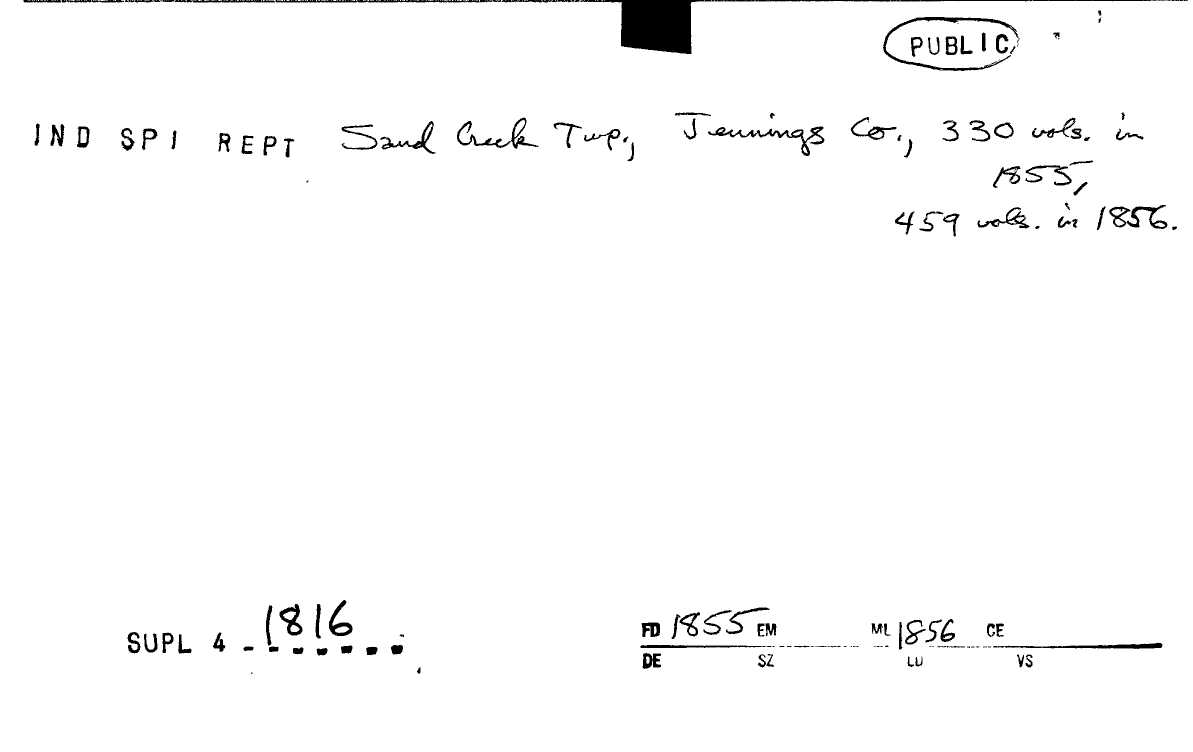 PUBLIC
IND SPI REPT Sand Creek Twp., Jennings Co., 330 vols. in
1855,
459 vols. in 1856.
SUPL 4 1816
FD 1855 EM ML 1856 CE
DE SZ LU VS